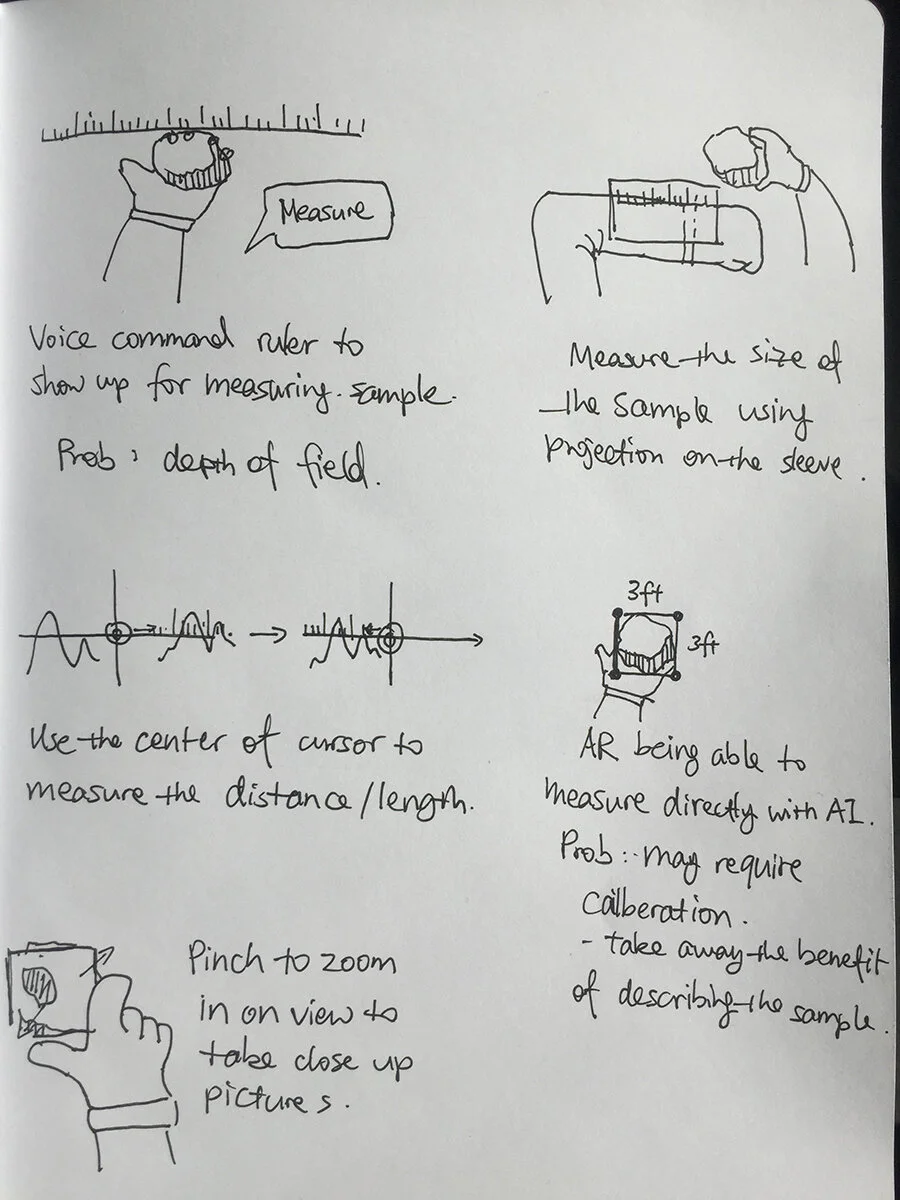 Measure
Voice command ruler to
show up for measuring sample.
Prob : depth of field.
Measure the size of
the sample using
projection on the sleeve.
Use the center of cursor to
measure the distance/length.
3ft
3ft
AR being able to
measure directly with AI.
Prob : may require
calberation.
- take away the benefit
of describing the sample.
Pinch to zoom
in on view to
take close up
pictures.